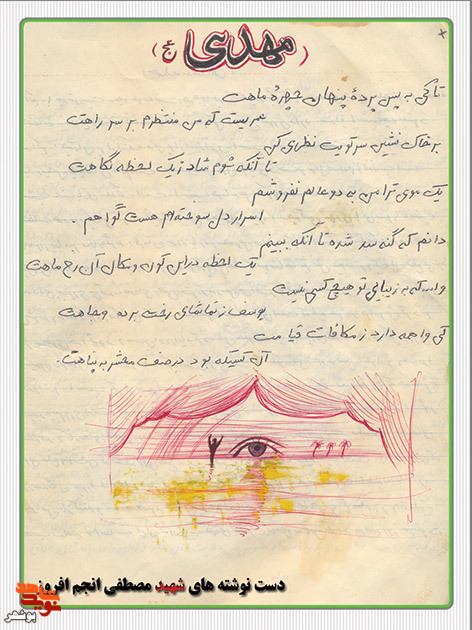 (مهدی عج)
تا کی به پس پردهٔ پنهان چهرهٔ ماهت
عمریست که من منتظرم بر سر راهت
بر خاک نشین سر کویت نظری کن
تا آنکه شوم شاد ز یک لحظه نگاهت
یک موی ترا من به دو عالم نفروشم
اسرار دل سوخته‌ام هست گواهم .
دانم که گنه سد شده تا آنکه ببینم
یک لحظه در این کون و مکان آن رخ ماهت
والله که به زیبایی تو هیچ کسی نیست
یوسف ز تماشای رخت برده وجاهت
کی واهمه دارد ز مکافات قیامت
آن کس که بود در صف محشر به پناهت .
دست نوشته های شهید مصطفی انجم افروز
نوید شاهد
بوشهر